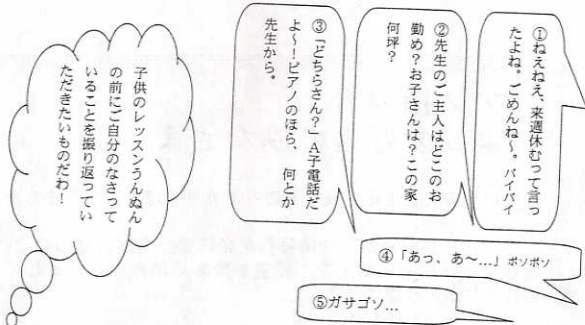 ①ねえねえ、来週休むって言っ
たよね。ごめんね～。バイバイ
②先生のご主人はどこのお
勤め？お子さんは？この家
何坪？
③「どちらさん？」A子電話だ
よ～！ピアノのほら、何とか
先生から。
④「あっ、あ～…」ボソボソ
⑤ガサゴソ…
子供のレッスンうんぬん
の前にご自分のなさって
いることを振り返ってい
ただきたいものだわ！